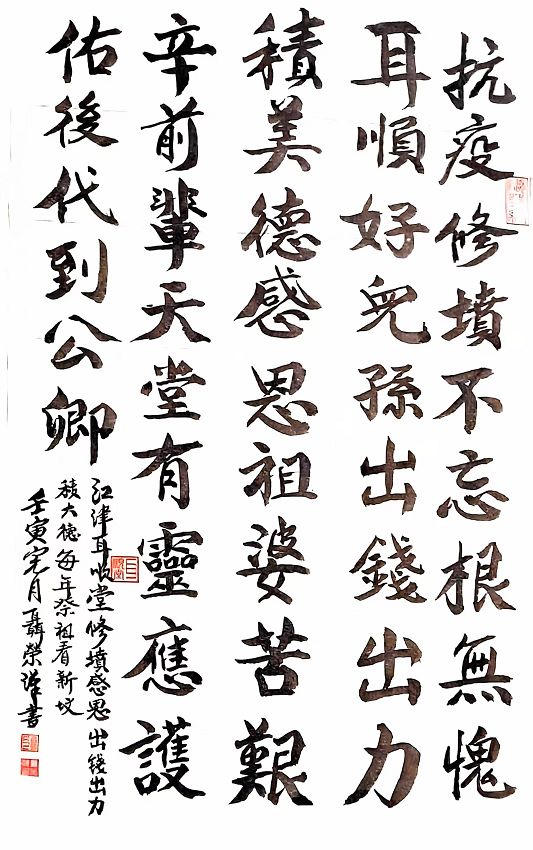 抗疫修墳不忘根無愧
耳順好兒孫出錢出力
積美德感恩祖婆苦艱
辛前輩天堂有靈應護
佑後代到公卿
江津耳順堂修墳感恩出錢出力
積大德每年祭祖看新墳
壬寅年月聶榮謹書